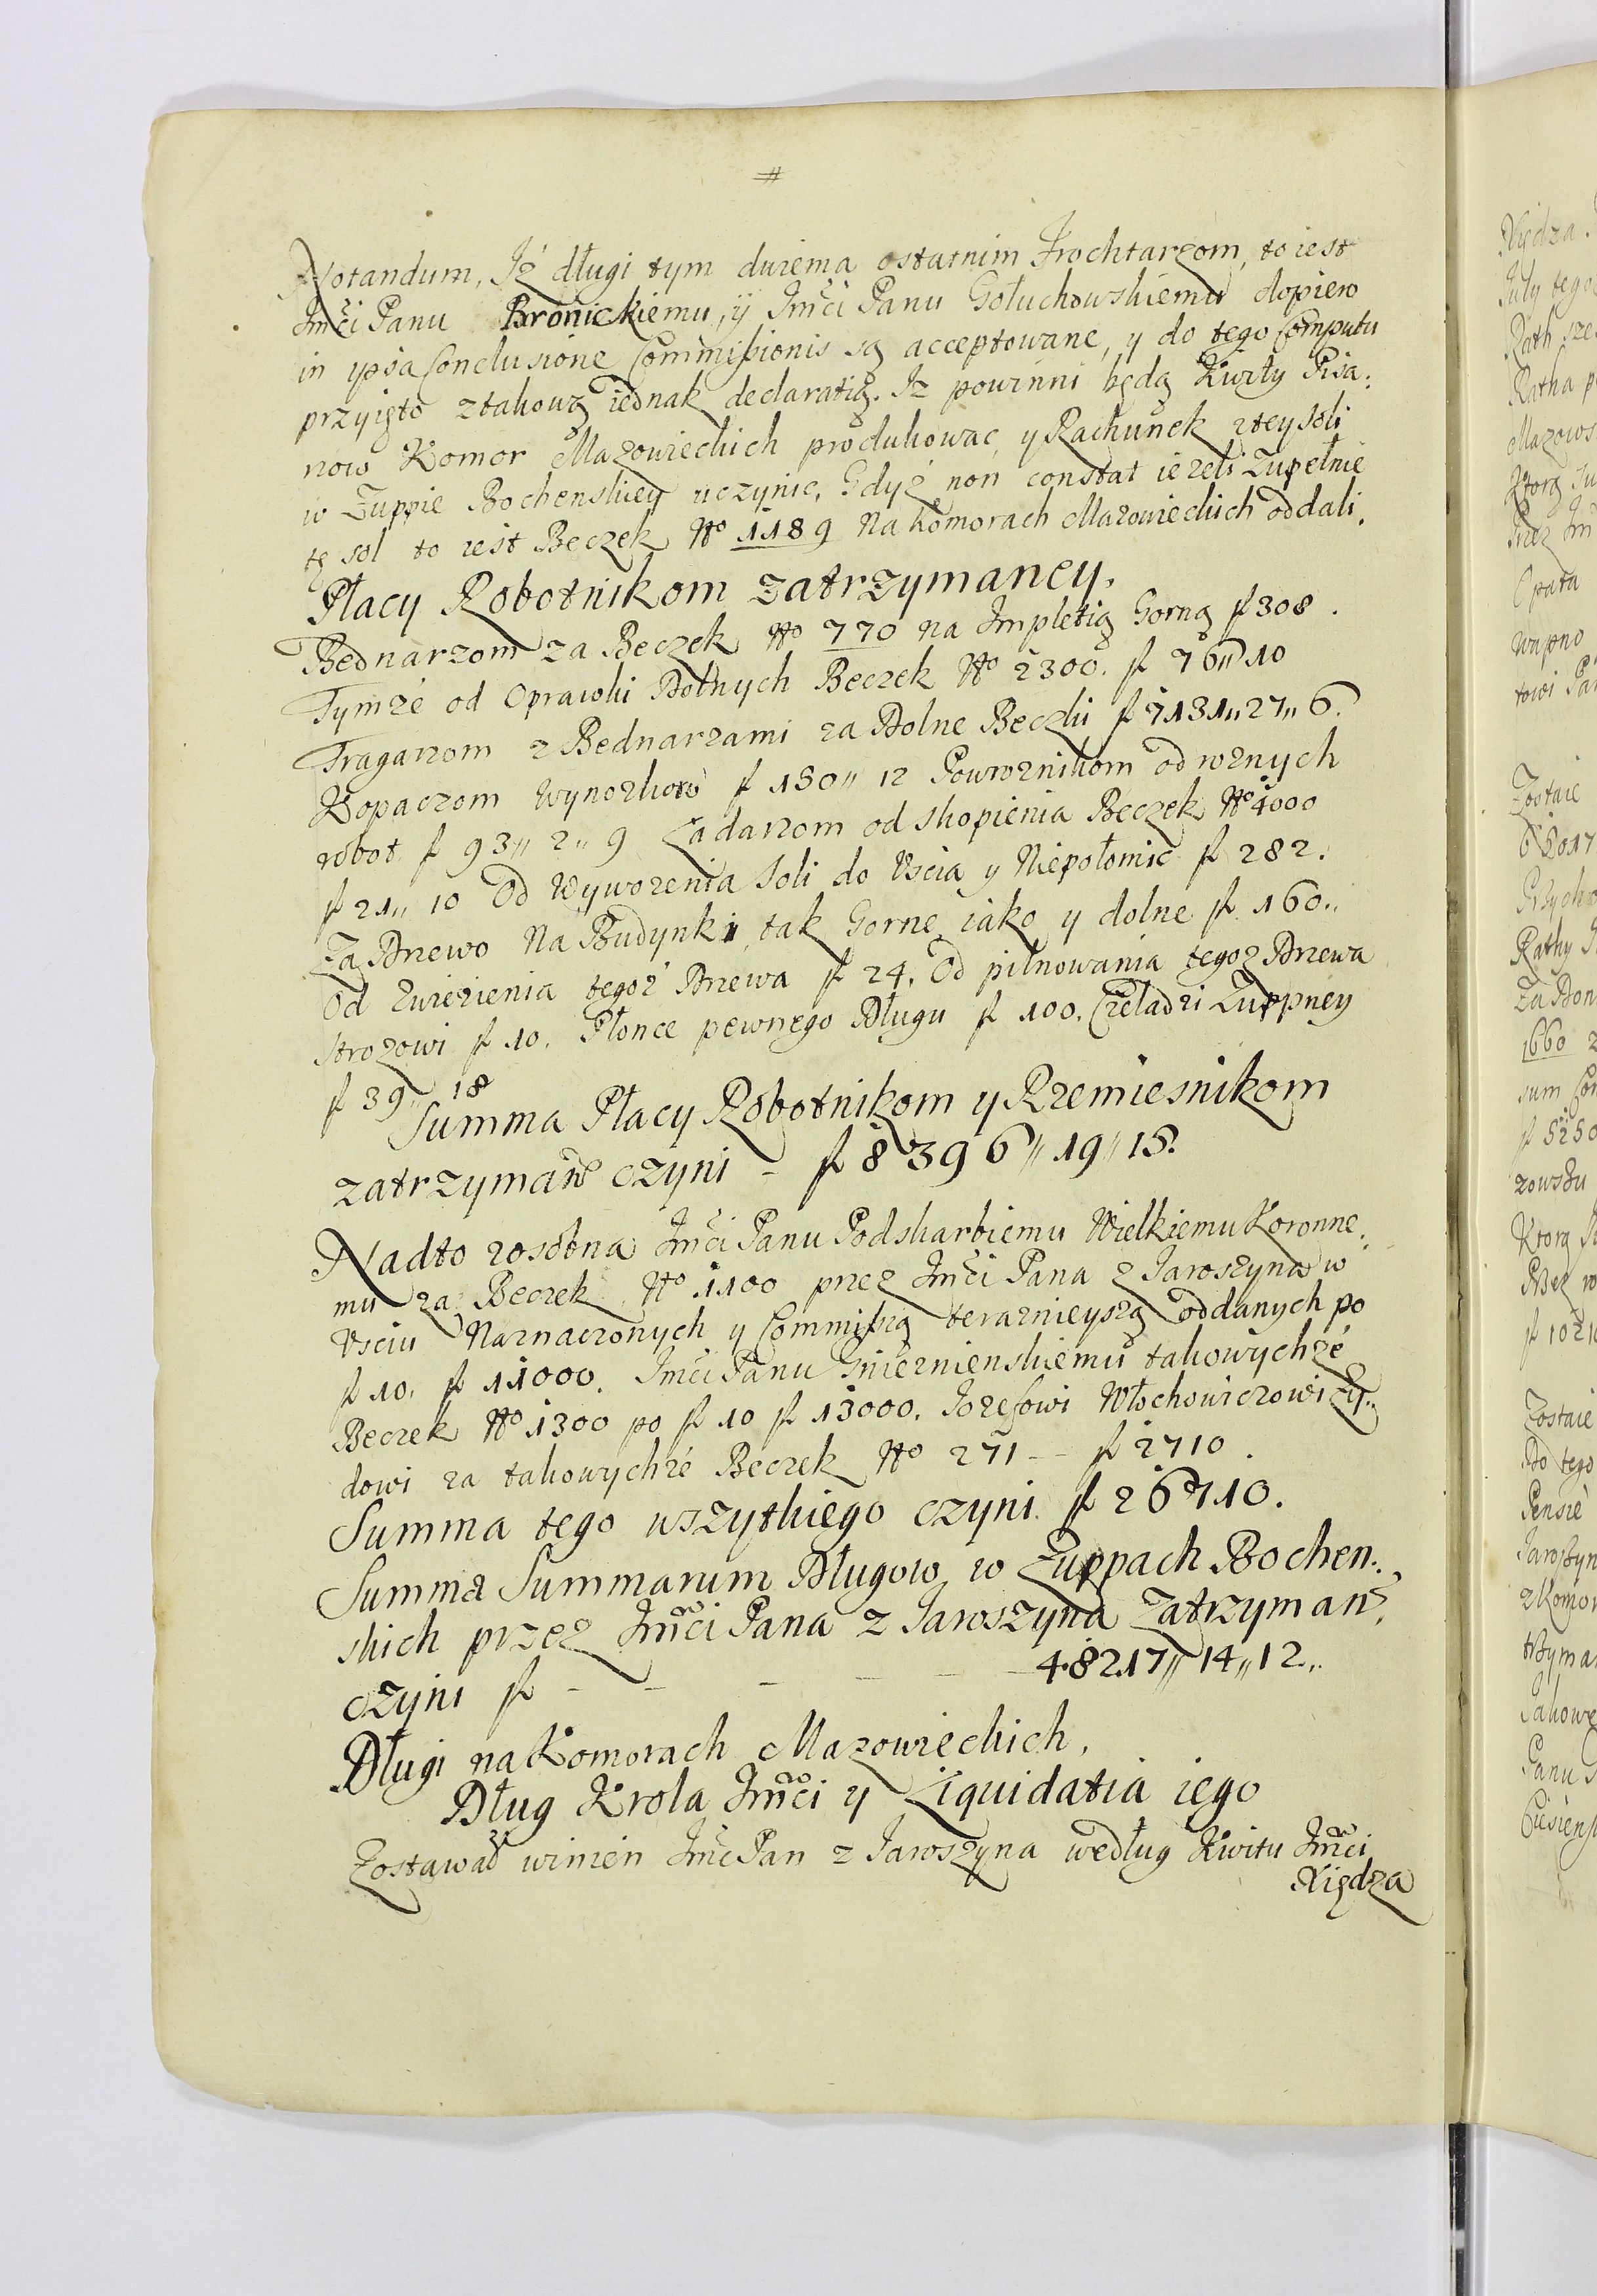 #
Notandum, Iż długi tym dwiema ostatnim Frochtarzom, to iest
Imći Panu Bronickiemu, ÿ Imći Panu Gołuchowskiemu dopiero
in ypsa Conclusione Commissionis są acceptowane, y do tego Computu
przyięto z takową iednak declaratią. Iz powinni będą Kwity Pisa:
row Komor Mazowieckich produkowac, y Rachunek z tey soli
w Zuppie Bochenskiey uczynic, Gdyż non constat iezeli Zupełnie
tę sol to iest Beczek No 1189 na Komorach Mazowieckich oddali.
Płacy Robotnikom zatrzymaney.
Bednarzom za Beczek No 770 na Impletią Gorną f 308.
Tymze od Oprawki Dolnych Beczek No 2300. f 76,, 10
Tragarzom z Bednarzami za Dolne Beczki f 7131,, 27,, 6.
Kopaczom Wynozkow f 150,, 12 Powroznikom od roznych
robot f 93,, 2,, 9 Ładarzom od skopienia Beczek No 4000
f 21,, 10 Od Wywozenia Soli do Vscia y Niepołomic f 282.
Za Drzewo na Budynki, tak Gorne iako y dolne f 160.,
Od Zwiezienia tegoz Drzewa f 24, Od pilnowania tegoz Drzewa
strozowi f 10. Płonce pewnego Długu f 100. Czeladzi Zuppney
f 39,, 18
Summa Płacy Robotnikom y Rzemiesnikom
zatrzymane czyni - f 8396,, 19,, 15.
Nadto zosobna Imći Panu Podskarbiemu Wielkiemu Koronne,
mu za Beczek No 1100 przez Imći Pana z Iaroszyna w
Vsciu Naznaczonych y Commissią teraznieyszą oddanych po
f 10. f 11000. Imći Panu Gnieznienskiemu takowychze
Beczek No 1300 po f 10 f 13000. Iozefowi Włochowiczowi Zy..
dowi za takowychże Beczek No 271 -- f 2710.
Summa tego wszytkiego czyni f 26710.
Summa Summarum Długow w Zuppach Bochen.,
skich przez Imći Pana z Iaroszyna zatrzyman.
czyni f - - - - - 48217,, 14,, 12.,.
Długi na Komorach Mazowieckich,
Dług Krola Imći y Liquidatia iego
Zostawał winien Imć Pan z Iaroszyna według Kwitu Imći
Xiędza